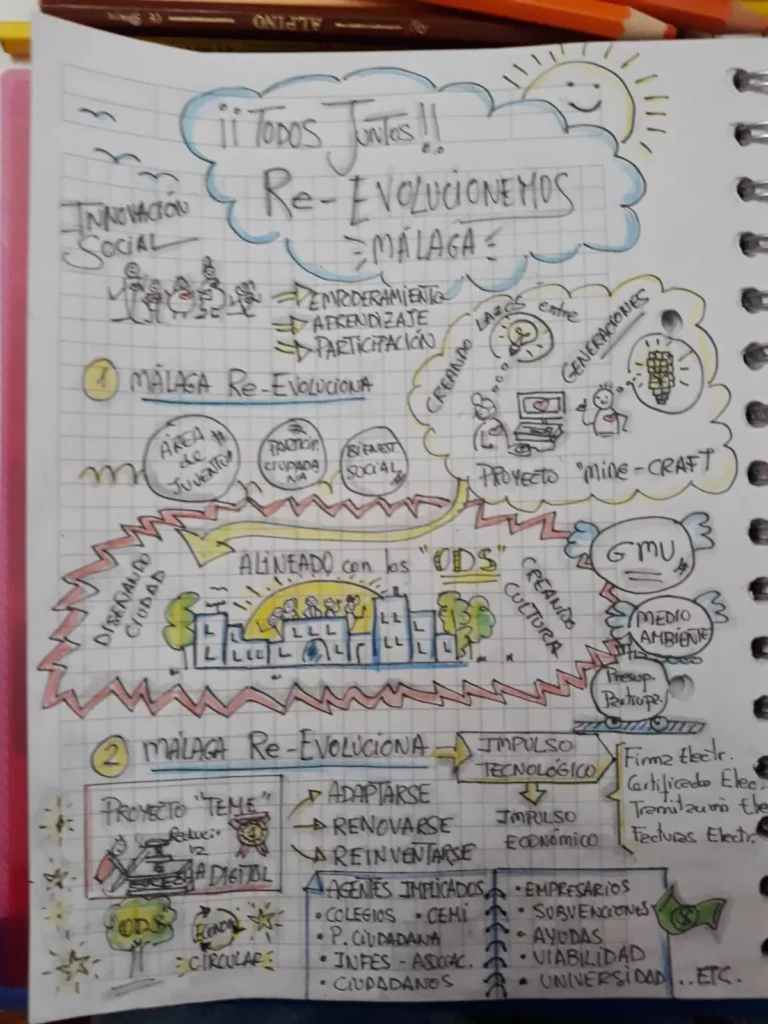 ALPINO
¡¡TODOS JUNTOS!!
Re-EVOLUCIONEMOS
MÁLAGA
INNOVACIÓN
SOCIAL
EMPODERAMIENTO
APRENDIZAJE
PARTICIPACIÓN
CREANDO LAZOS entre
GENERACIONES
PROYECTO "MINE-CRAFT
1 MÁLAGA Re-EVOLUCIONA
ÁREA
de
JUVENTUD
PARTICIP.
CIUDADA
NIA
BIENEST.
SOCIAL
ALINEADO con los "ODS"
DISEÑANDO
CIUDAD
CREANDO
CULTURA
GMU
MEDIO
AMBIENTE
Presup.
Particip.
2 MÁLAGA Re-EVOLUCIONA
IMPULSO
TECNOLÓGICO
Firma Electr.
Certificado Elec.
Tramitación Ele
Facturas Electr.
IMPULSO
ECONÓMICO
PROYECTO "TEME"
Reducir
DIGITAL
ADAPTARSE
RENOVARSE
REINVENTARSE
AGENTES IMPLICADOS
• COLEGIOS • CEMI
• P. CIUDADANA
• INFES - ASOCIAC.
• CIUDADANOS
• EMPRESARIOS
• SUBVENCIONES
• AYUDAS
• VIABILIDAD
• UNIVERSIDAD ..ETC.
ODS
ECONOM.
CIRCULAR